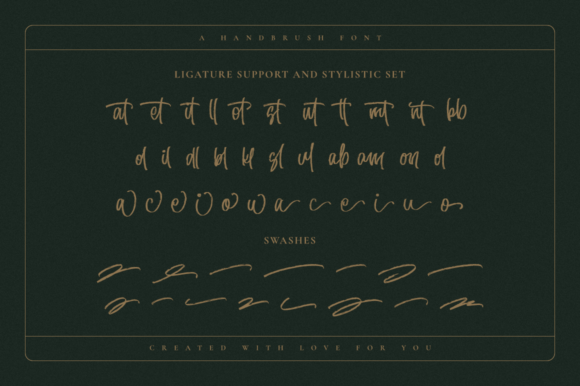 A HANDBRUSH FONT
LIGATURE SUPPORT AND STYLISTIC SET
at et it ll ot st ut tt mt nt bb
d il dl bl kl sl ul ab am on d
a c e i o w a c e i u o
SWASHES
CREATED WITH LOVE FOR YOU